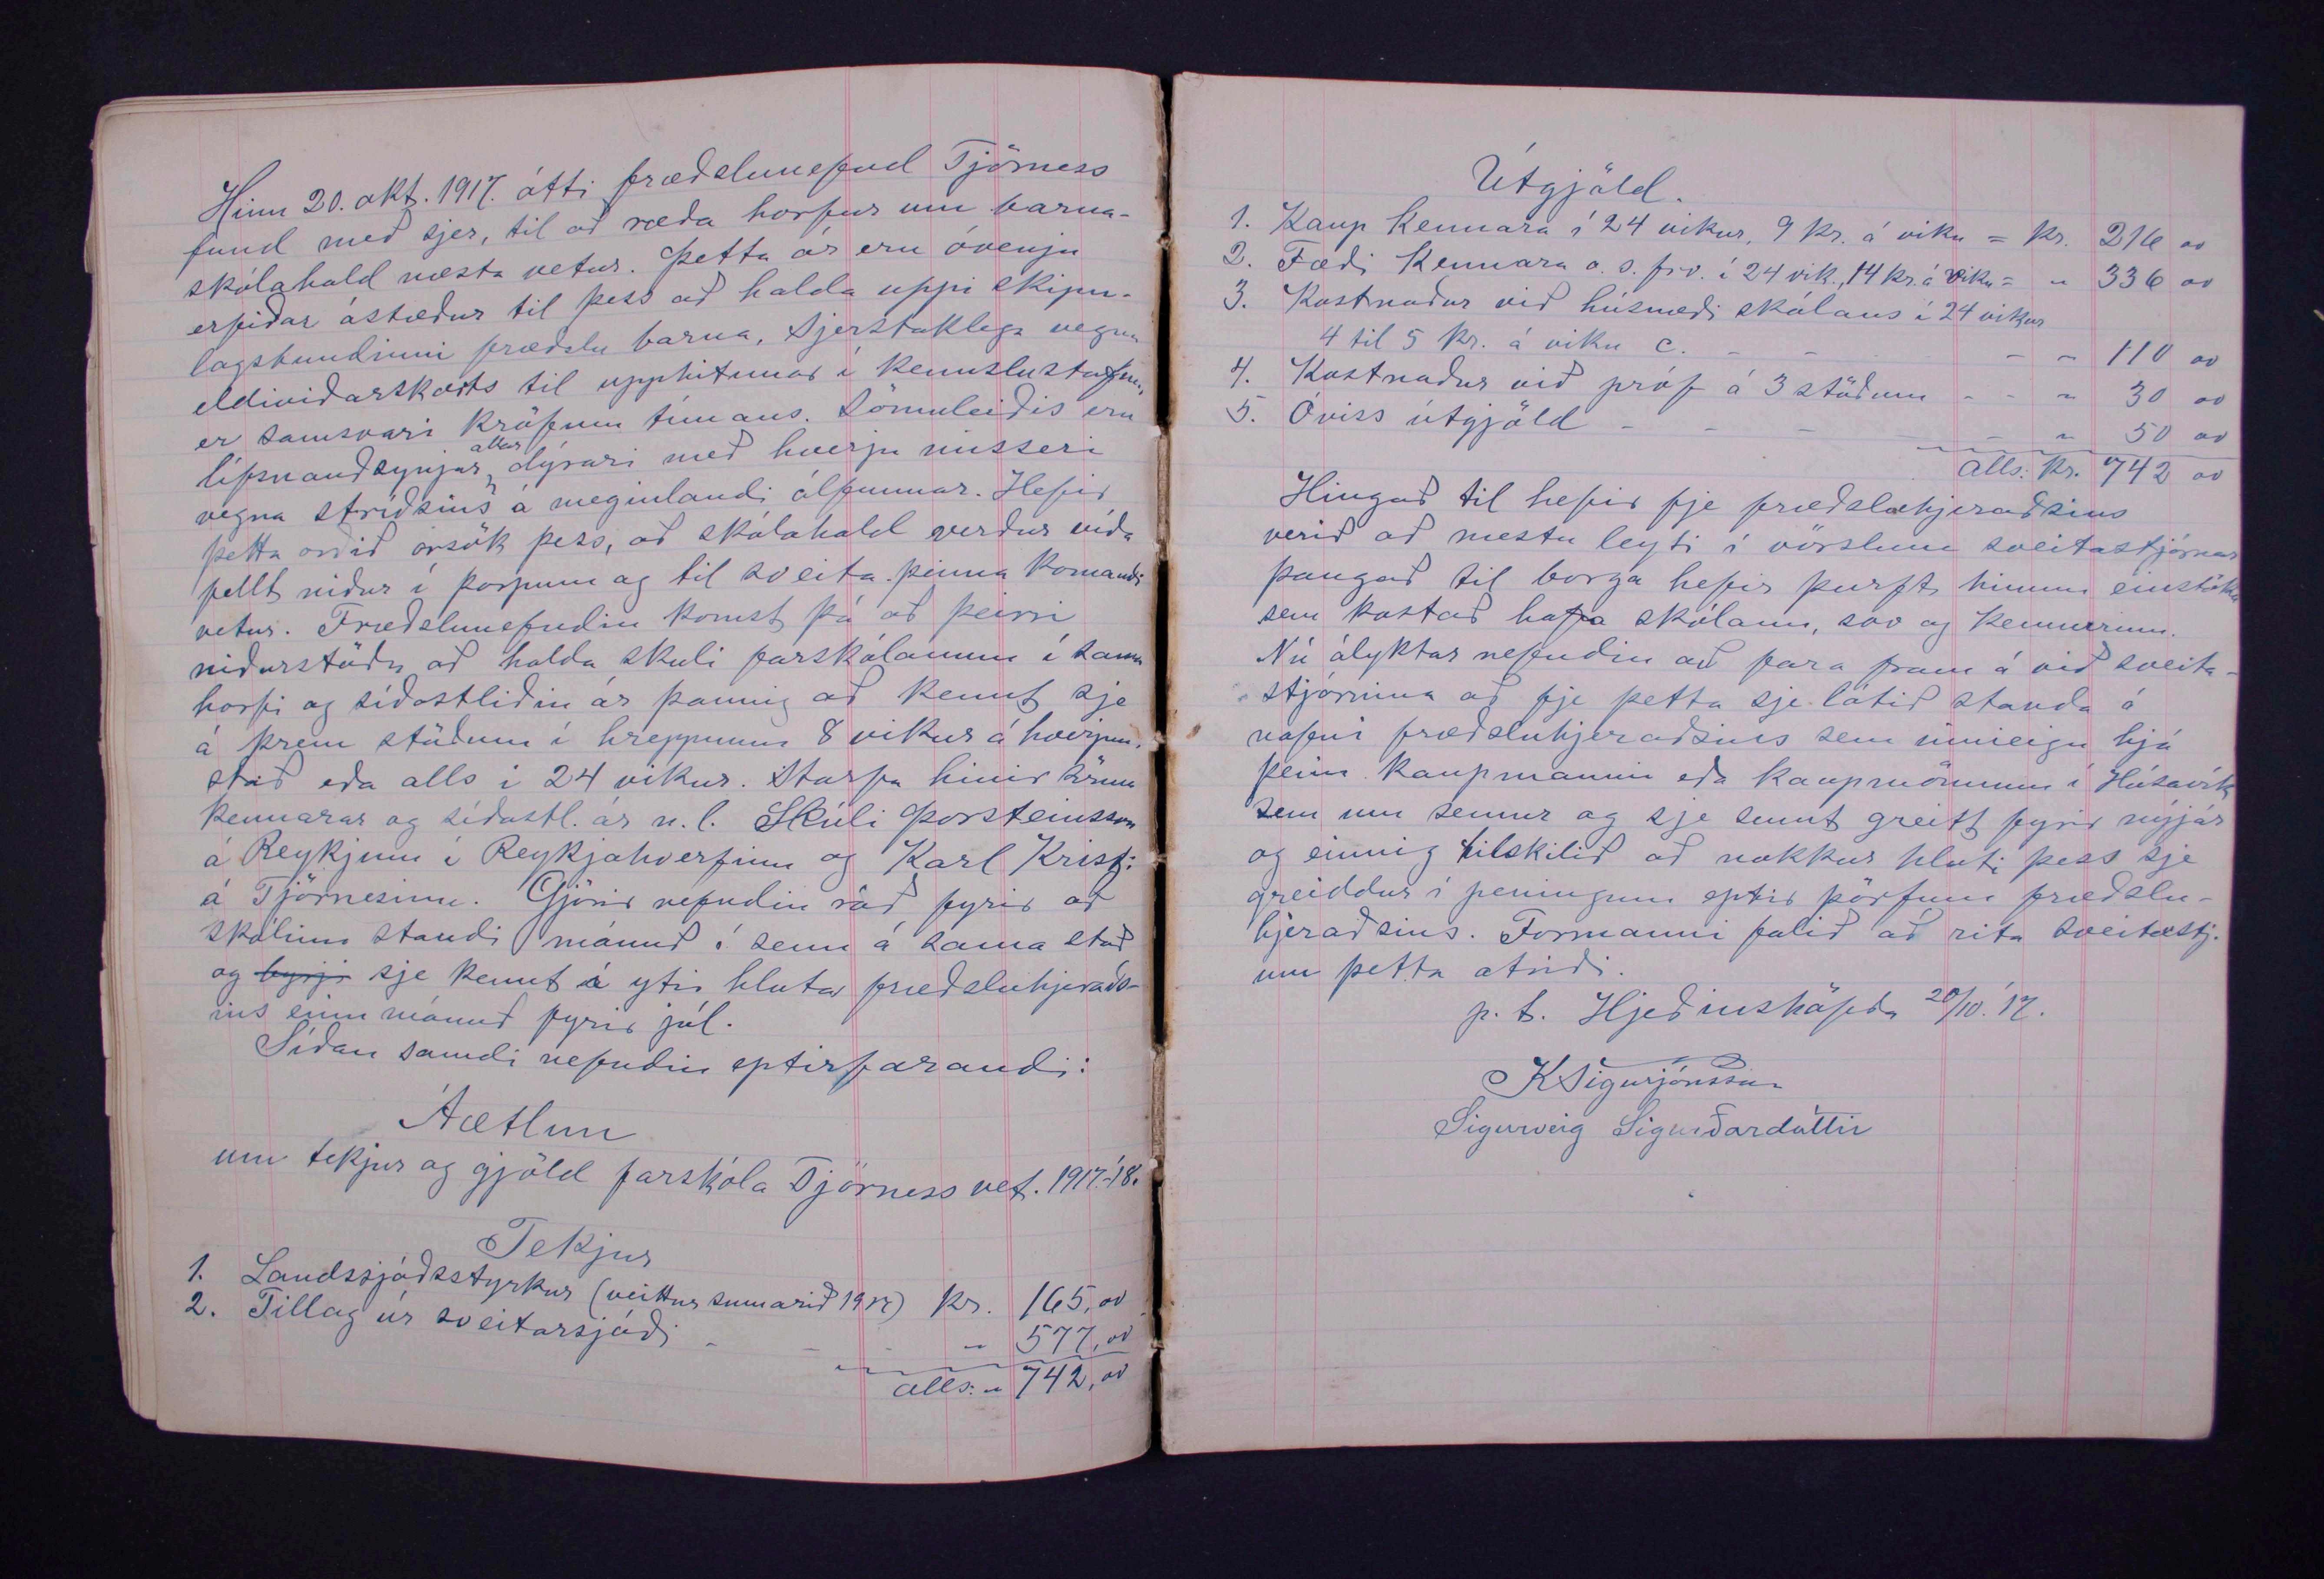 Hinn 20. okt. 1917. átti fræðslunefnd Tjörness
fund með sjer, til að ræða horfur um barna-
skólahald næsta vetur. Þetta ár eru óvenju
erfiðar ástæður til þess að halda uppi skipu-
lagsbundinni fræðslu barna, sjerstaklega vegna
eldiviðarskorts til upphitunar í kennslustofum,
er samsvari kröfum tímans. Sömuleiðis eru
lífsnauðsynjar allar dýrari með hverju misseri
vegna stríðsins á meginlandi álfunnar. Hefir
þetta orðið orsök þess, að skólahald verður víða
fellt niður í þorpum og til sveita þenna komandi
vetur. Fræðslunefndin komst þá að þeirri
niðurstöðu að halda skuli farskólanum í sama
horfi og síðastliðin ár þannig að kennt sje
á þrem stöðum í hreppnum 8 vikur á hverjum
stað eða alls í 24 vikur. Starfa hinir sömu
kennarar og síðastl. ár n.l. Skúli Þorsteinsson
á Reykjum í Reykjahverfinu og Karl Kristj:
á Tjörnesinu. Gjörir nefndin ráð fyrir að
skólinn standi mánuð í senn á sama stað
og byrji sje kennt í ytri hluta fræðsluhjeraðs-
ins einn mánuð fyrir jól.
Síðan samdi nefndin eptirfarandi:
Áætlun
um tekjur og gjöld farskóla Tjörness vet. 1917-'18.
Tekjur
1. Landssjóðsstyrkur (veittur sumarið 1917) Kr. 165,00
2. Tillag úr sveitarsjóði - - - " 577,00
alls: " 742,00
Útgjöld.
1. Kaup kennara í 24 vikur, 9 kr. á viku = Kr. 216 00
2. Fæði kennara o. s. frv. í 24 vik., 14 kr. á viku = " 336 00
3. Kostnaður við húsnæði skólans í 24 vikur
4 til 5 kr. á viku c. - - - " 110 00
4. Kostnaður við próf á 3 stöðum - - " 30 00
5. Óviss útgjöld - - - - " 50 00
Alls: Kr. 742 00
Hingað til hefir fje fræðsluhjeraðsins
verið að mestu leyti í vörslum sveitastjórnar
þangað til borga hefir þurft hinum einstöku
sem kostað hafa skólann, svo og kennurum.
Nú ályktar nefndin að fara fram á við sveita-
stjórnina að fje þetta sje látið standa á
nafni fræðsluhjeraðsins sem inneign hjá
þeim kaupmanni eða kaupmönnum í Húsavík
sem um semur og sje sumt greitt fyrir nýjár
og einnig tilskilið að nokkur hluti þess sje
greiddur í peningum eptir þörfum fræðslu-
hjeraðsins. Formanni falið að rita sveitastj.
um þetta atriði.
p. t. Hjeðinshöfða 20/10. '17.
KSigurjónsson
Sigurveig Sigurðardóttir